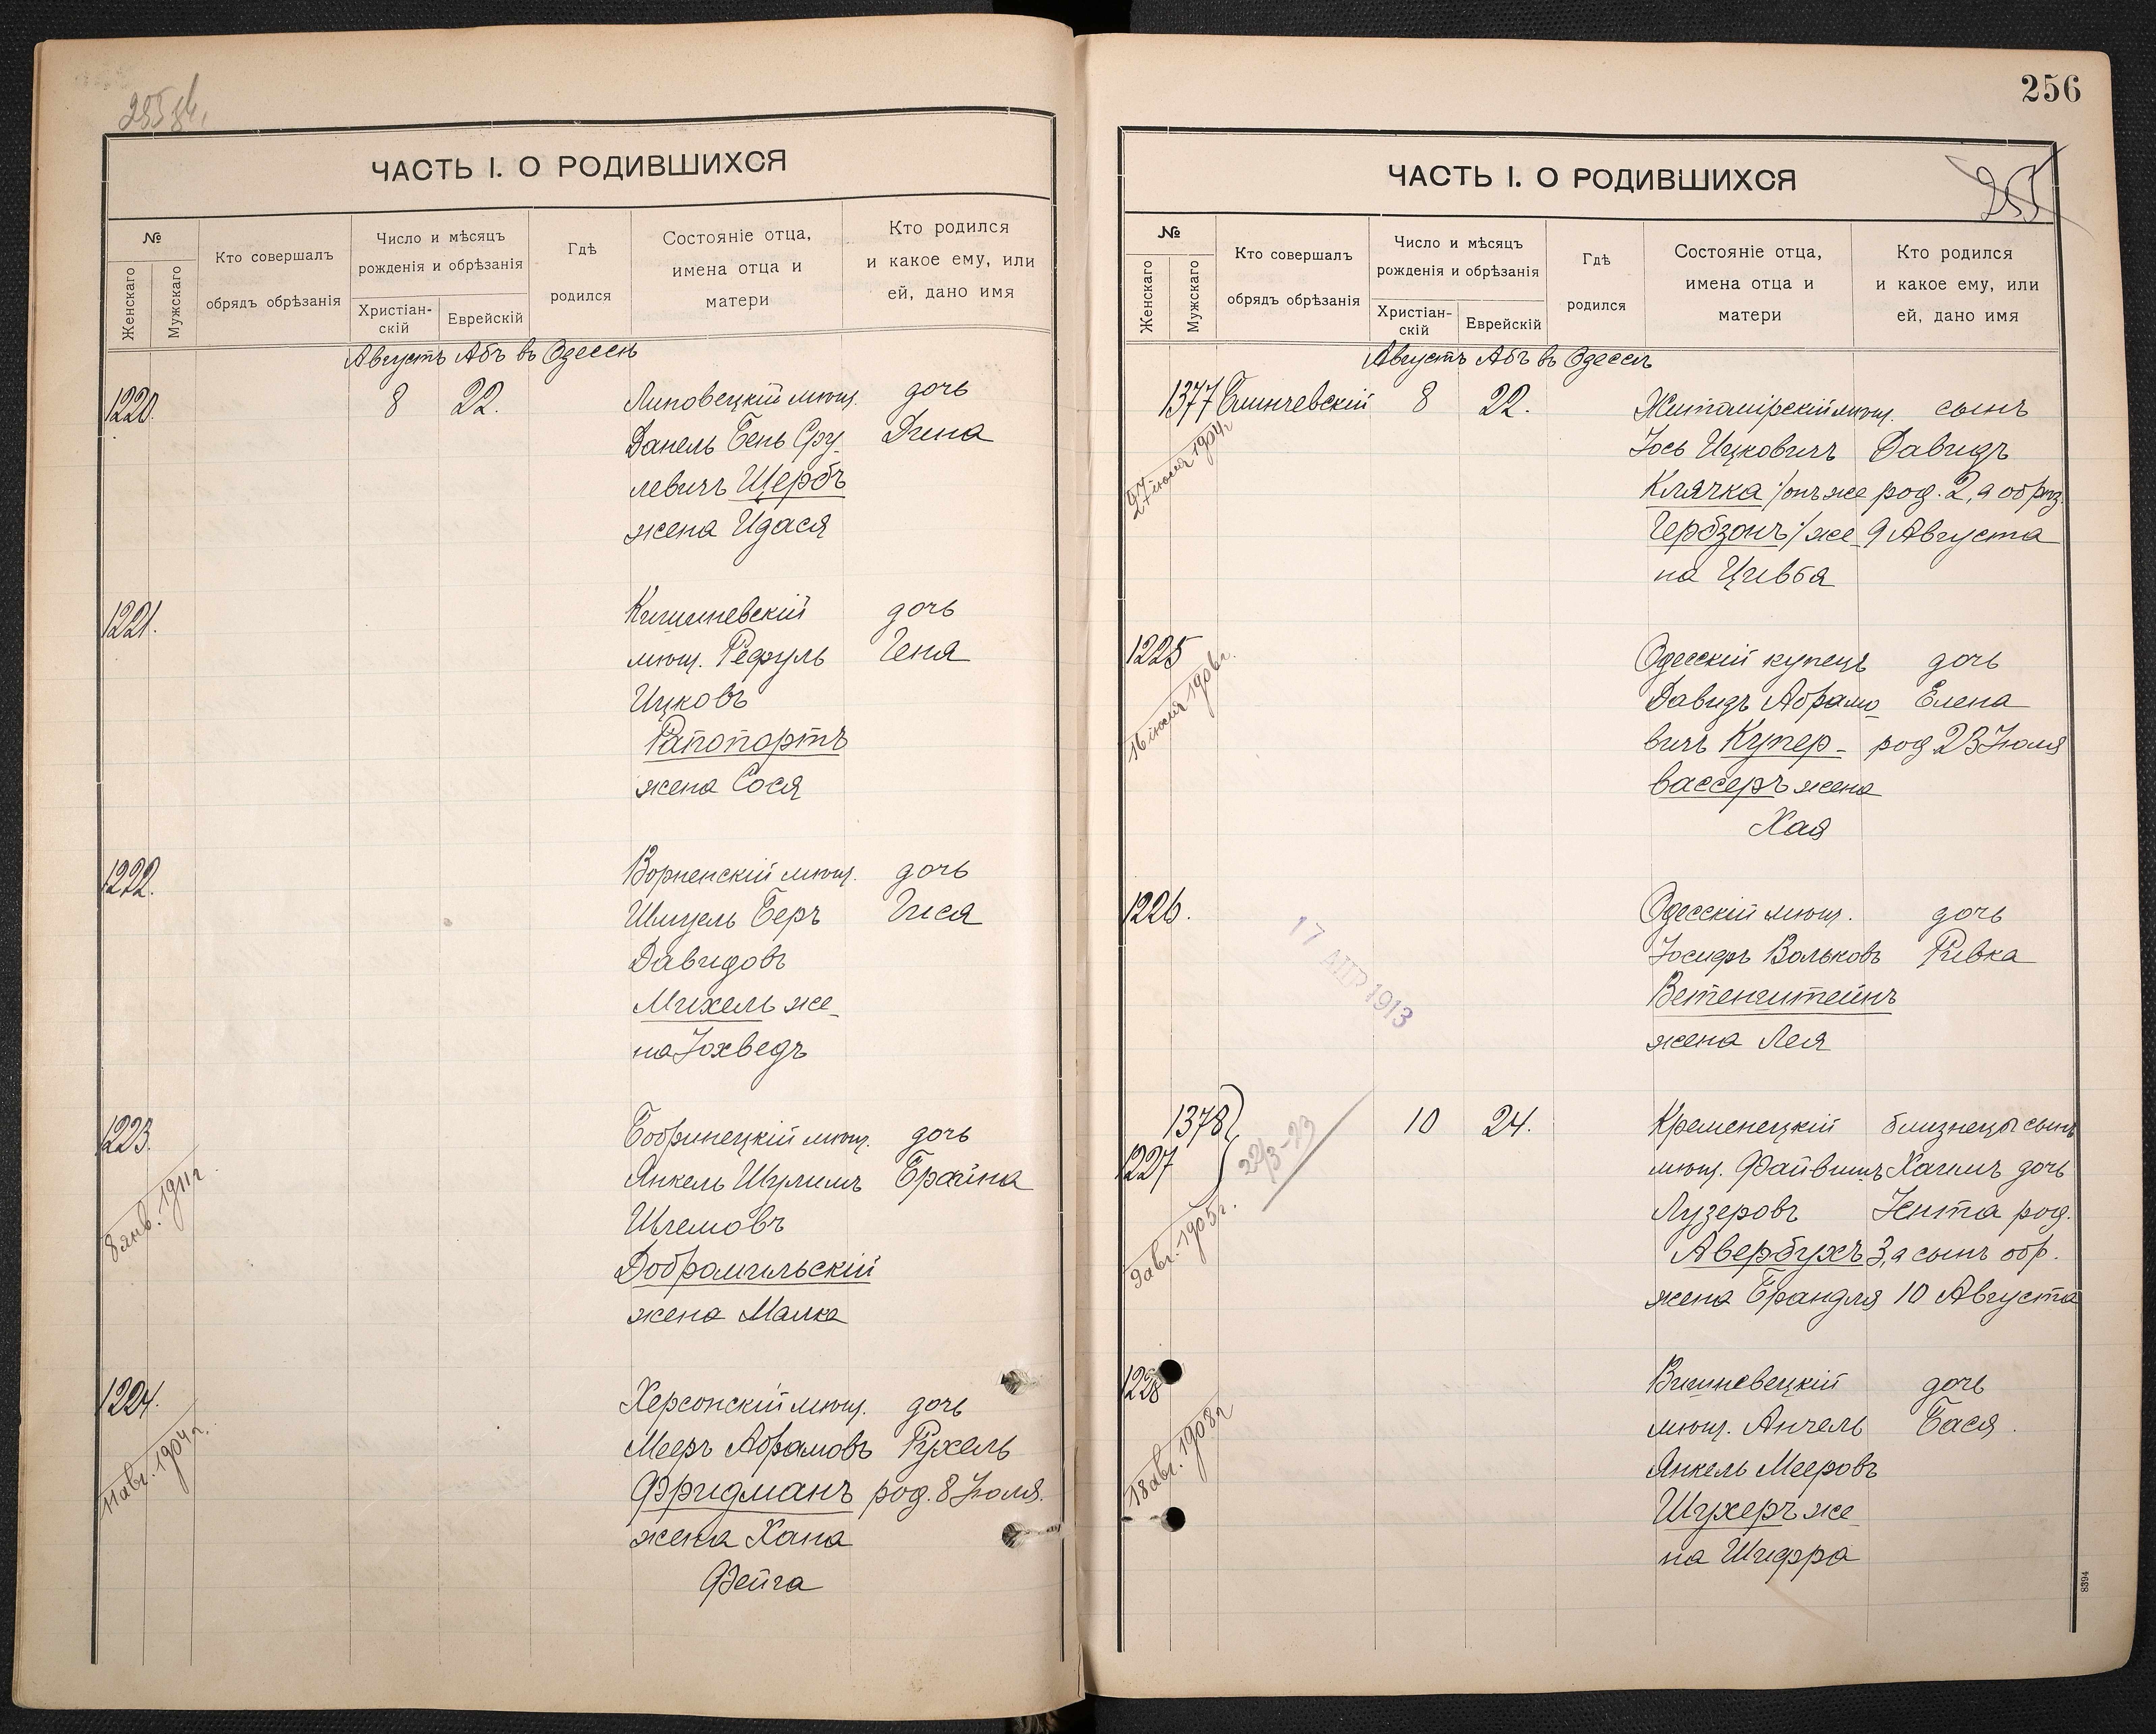 255 об.
ЧАСТЬ I. О РОДИВШИХСЯ
№
Женскаго
Мужскаго
Кто совершалъ
обрядъ обрѣзанія
Число и мѣсяцъ
рожденія и обрѣзанія
Христіан-
скій
Еврейскій
Гдѣ
родился
Состояніе отца,
имена отца и
матери
Кто родился
и какое ему, или
ей, дано имя
Августъ Абъ въ Одессѣ
1220. 8 22. Липовецкій мѣщ. дочь
Данель Бень Сру- Дина
левичъ Щербъ
жена Идася
1221. Кишиневскій дочь
мѣщ. Рефуль Геня
Ицковъ
Рапопортъ
жена Сося
1222. Ворненскій мѣщ. дочь
Шмуель Беръ Гися
Давидовъ
Михель же-
на Іохведъ
1223. Бобринецкій мѣщ. дочь
Янкель Шулимъ Брайна
Шлемовъ
Добромильскій
жена Малка
8 янв. 1911 г.
1224. Херсонскій мѣщ. дочь
Мееръ Абрамовъ Рухель
Фридманъ род. 8 Іюля.
жена Хана
Фейга
11 авг. 1904 г.
256
ЧАСТЬ I. О РОДИВШИХСЯ
255
№
Женскаго
Мужскаго
Кто совершалъ
обрядъ обрѣзанія
Число и мѣсяцъ
рожденія и обрѣзанія
Христіан-
скій
Еврейскій
Гдѣ
родился
Состояніе отца,
имена отца и
матери
Кто родился
и какое ему, или
ей, дано имя
Августъ Абъ въ Одессѣ
1377 8 22. Житомірскій мѣщ. сынъ
Іось Ицковичъ Давидъ
Клячка /:онъ же род. 2, а обрѣз.
Гербзонъ:/ же- 9 Августа
на Цивья
1904 г.
1225 Одесскій купецъ дочь
Давидъ Абрамо- Елена
вичъ Купер- род 23 Іюля
вассеръ жена
Хая
16 іюля 1906 г.
1226. Одесскій мѣщ. дочь
Іосифъ Вольковъ Ривка
Ветенштейнъ
жена Лея
17 АПР 1913
1378 10 24. Кременецкій близнецы сынъ
1227 мѣщ. Файвишъ Хаимъ дочь
Лузеровъ Іента род.
Авербухъ 3, а сынъ обр.
жена Брандля 10 Августа
22/3-23
9 авг. 1905 г.
1228 Вишневецкій дочь
мѣщ. Анчель Бася.
Янкель Мееровъ
Шухеръ же-
на Шифра
18 авг. 1908 г
8394